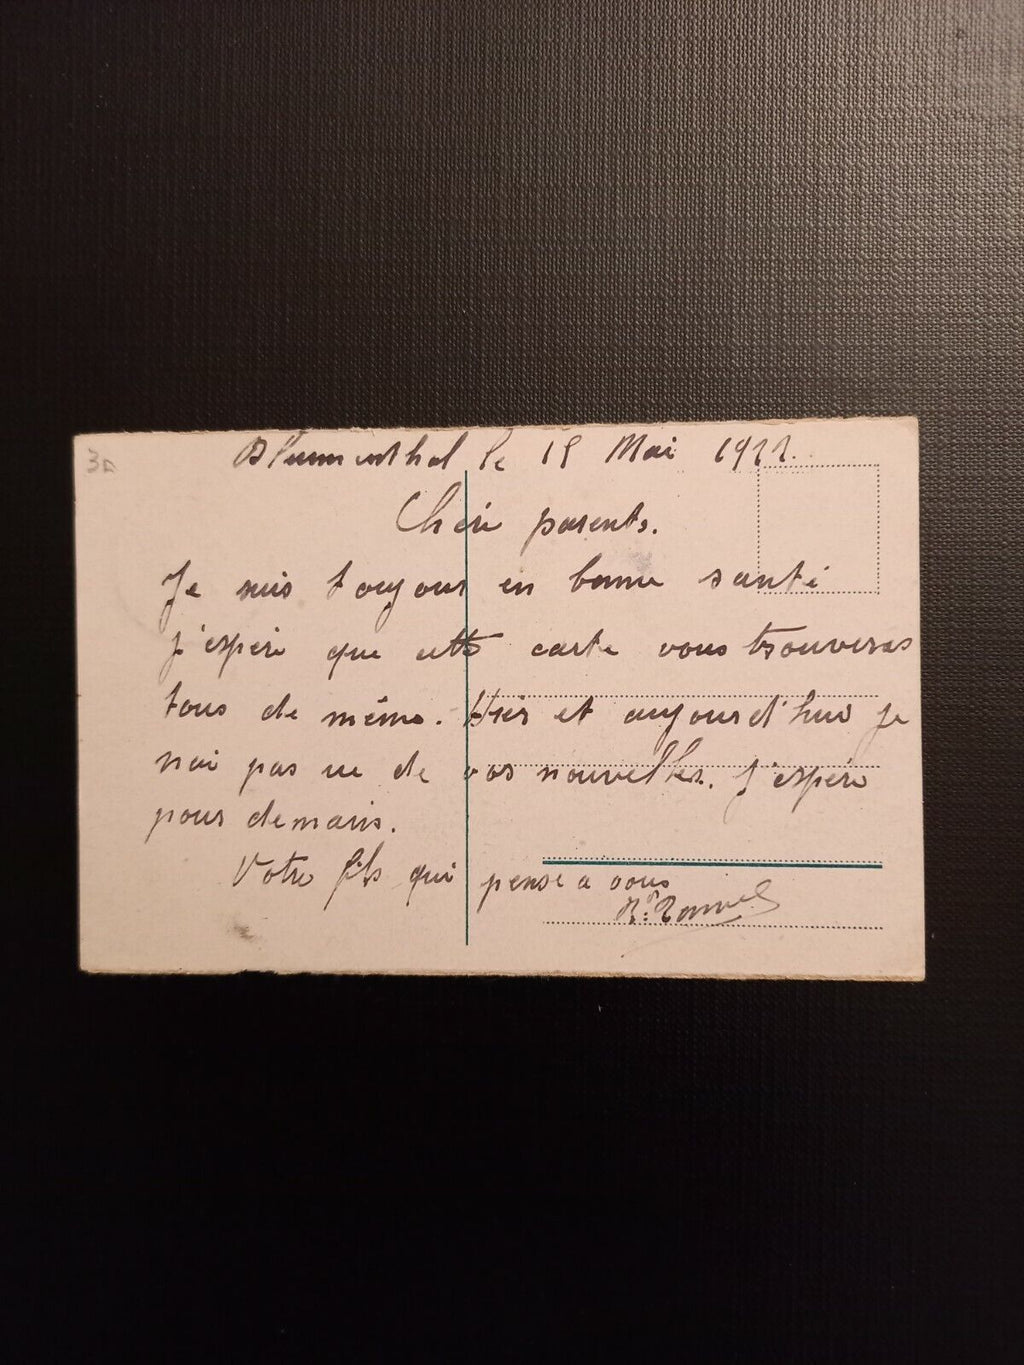 3
Blumenthal le 15 Mai 1921.
Chère parents.
Je suis toujour en bonne santé
j'espère que cette carte vous trouveras
tous de même. Hier et aujourd'hui je
nai pas ue de vos nouvelles. j'espère
pour demain.
Votre fils qui pense a vous